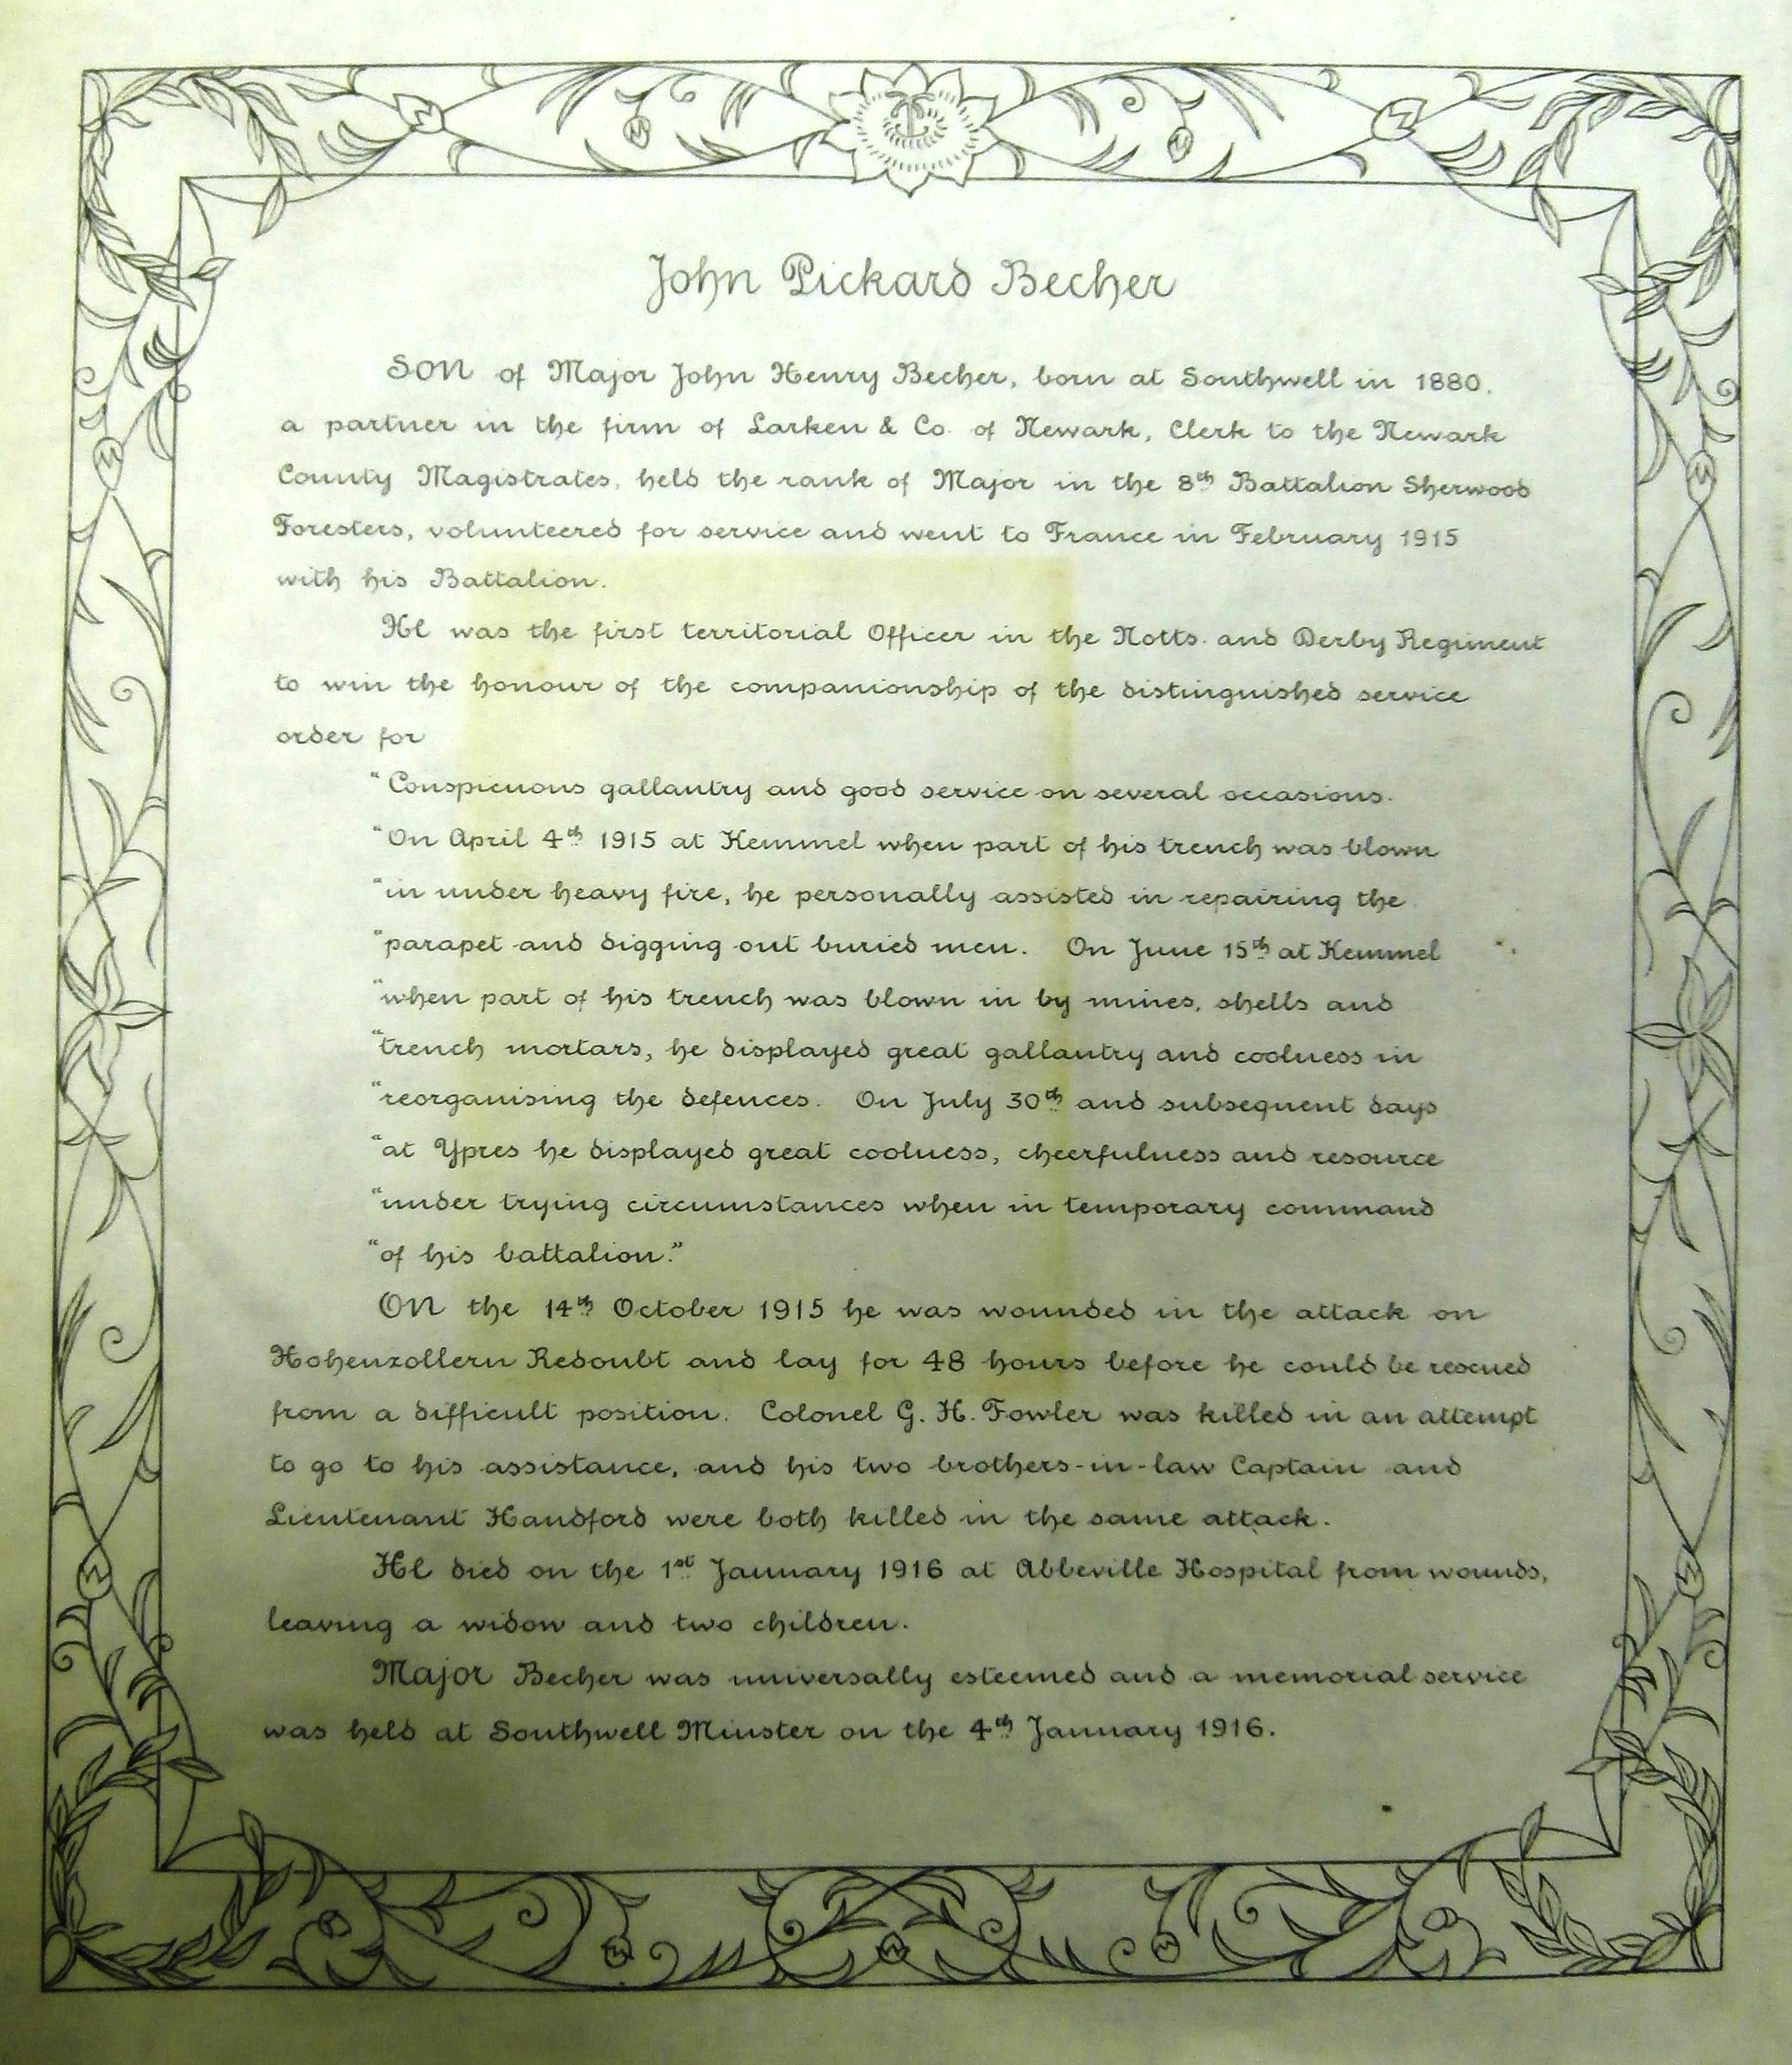 John Pickard Becher
SON of Major John Henry Becher, born at Southwell in 1880,
a partner in the firm of Larken & Co. of Newark, Clerk to the Newark
County Magistrates, held the rank of Major in the 8th Battalion Sherwood
Foresters, volunteered for service and went to France in February 1915
with his Battalion.
HE was the first territorial Officer in the Notts. and Derby Regiment
to win the honour of the companionship of the distinguished service
order for
"Conspicuous gallantry and good service on several occasions.
"On April 4th 1915 at Kemmel when part of his trench was blown
"in under heavy fire, he personally assisted in repairing the
"parapet and digging out buried men. On June 15th at Kemmel
"when part of his trench was blown in by mines, shells and
"trench mortars, he displayed great gallantry and coolness in
"reorganising the defences. On July 30th and subsequent days
"at Ypres he displayed great coolness, cheerfulness and resource
"under trying circumstances when in temporary command
"of his battalion."
ON the 14th October 1915 he was wounded in the attack on
Hohenzollern Redoubt and lay for 48 hours before he could be rescued
from a difficult position. Colonel G. H. Fowler was killed in an attempt
to go to his assistance, and his two brothers-in-law Captain and
Lieutenant Handford were both killed in the same attack.
HE died on the 1st January 1916 at Abbeville Hospital from wounds,
leaving a widow and two children.
Major Becher was universally esteemed and a memorial service
was held at Southwell Minster on the 4th January 1916.